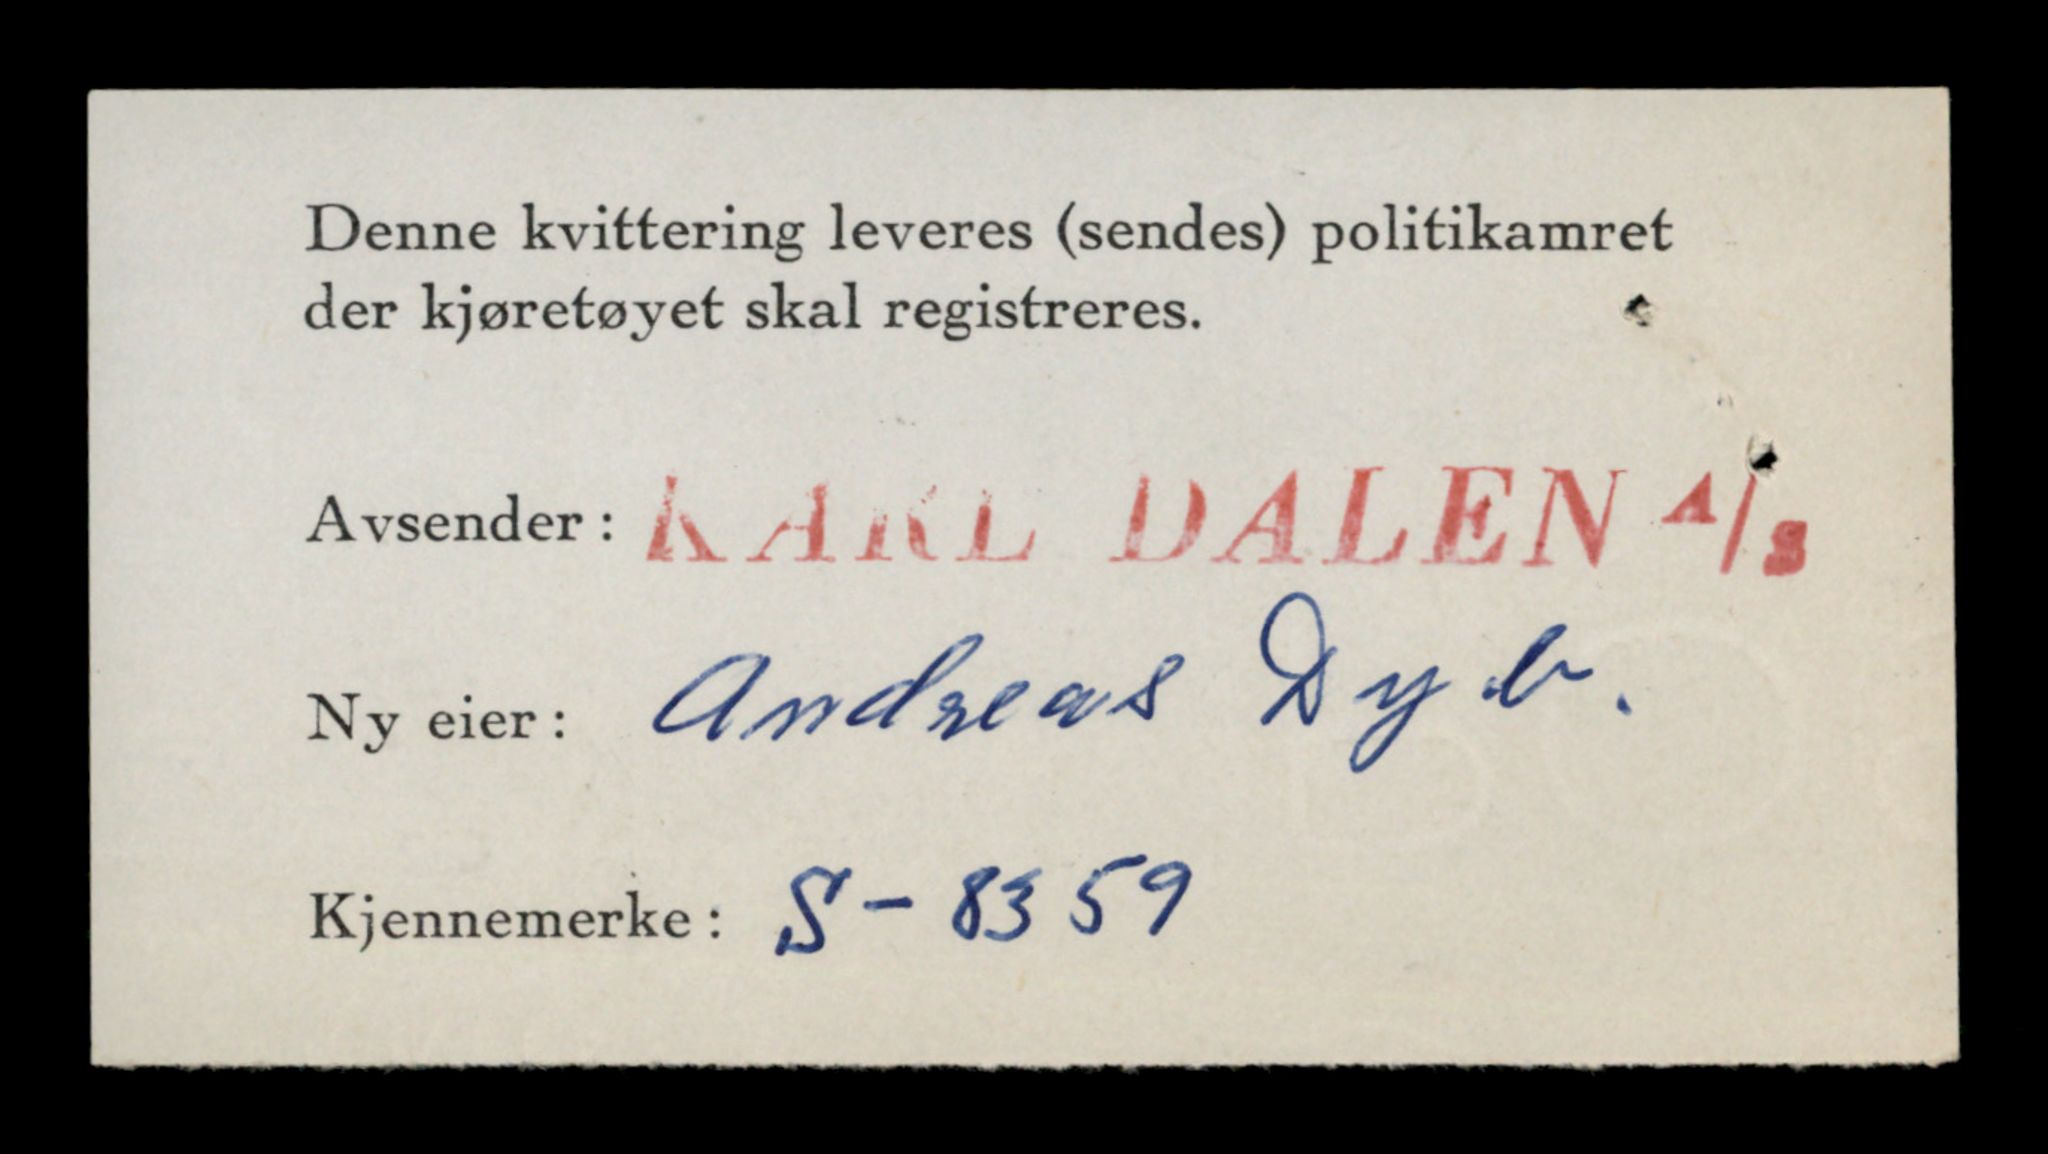 Denne kvittering leveres (sendes) politikamret
der kjøretøyet skal registreres.
Avsender: KARL DALEN A/S
Ny eier: Andreas Dyb.
Kjennemerke: S-8359